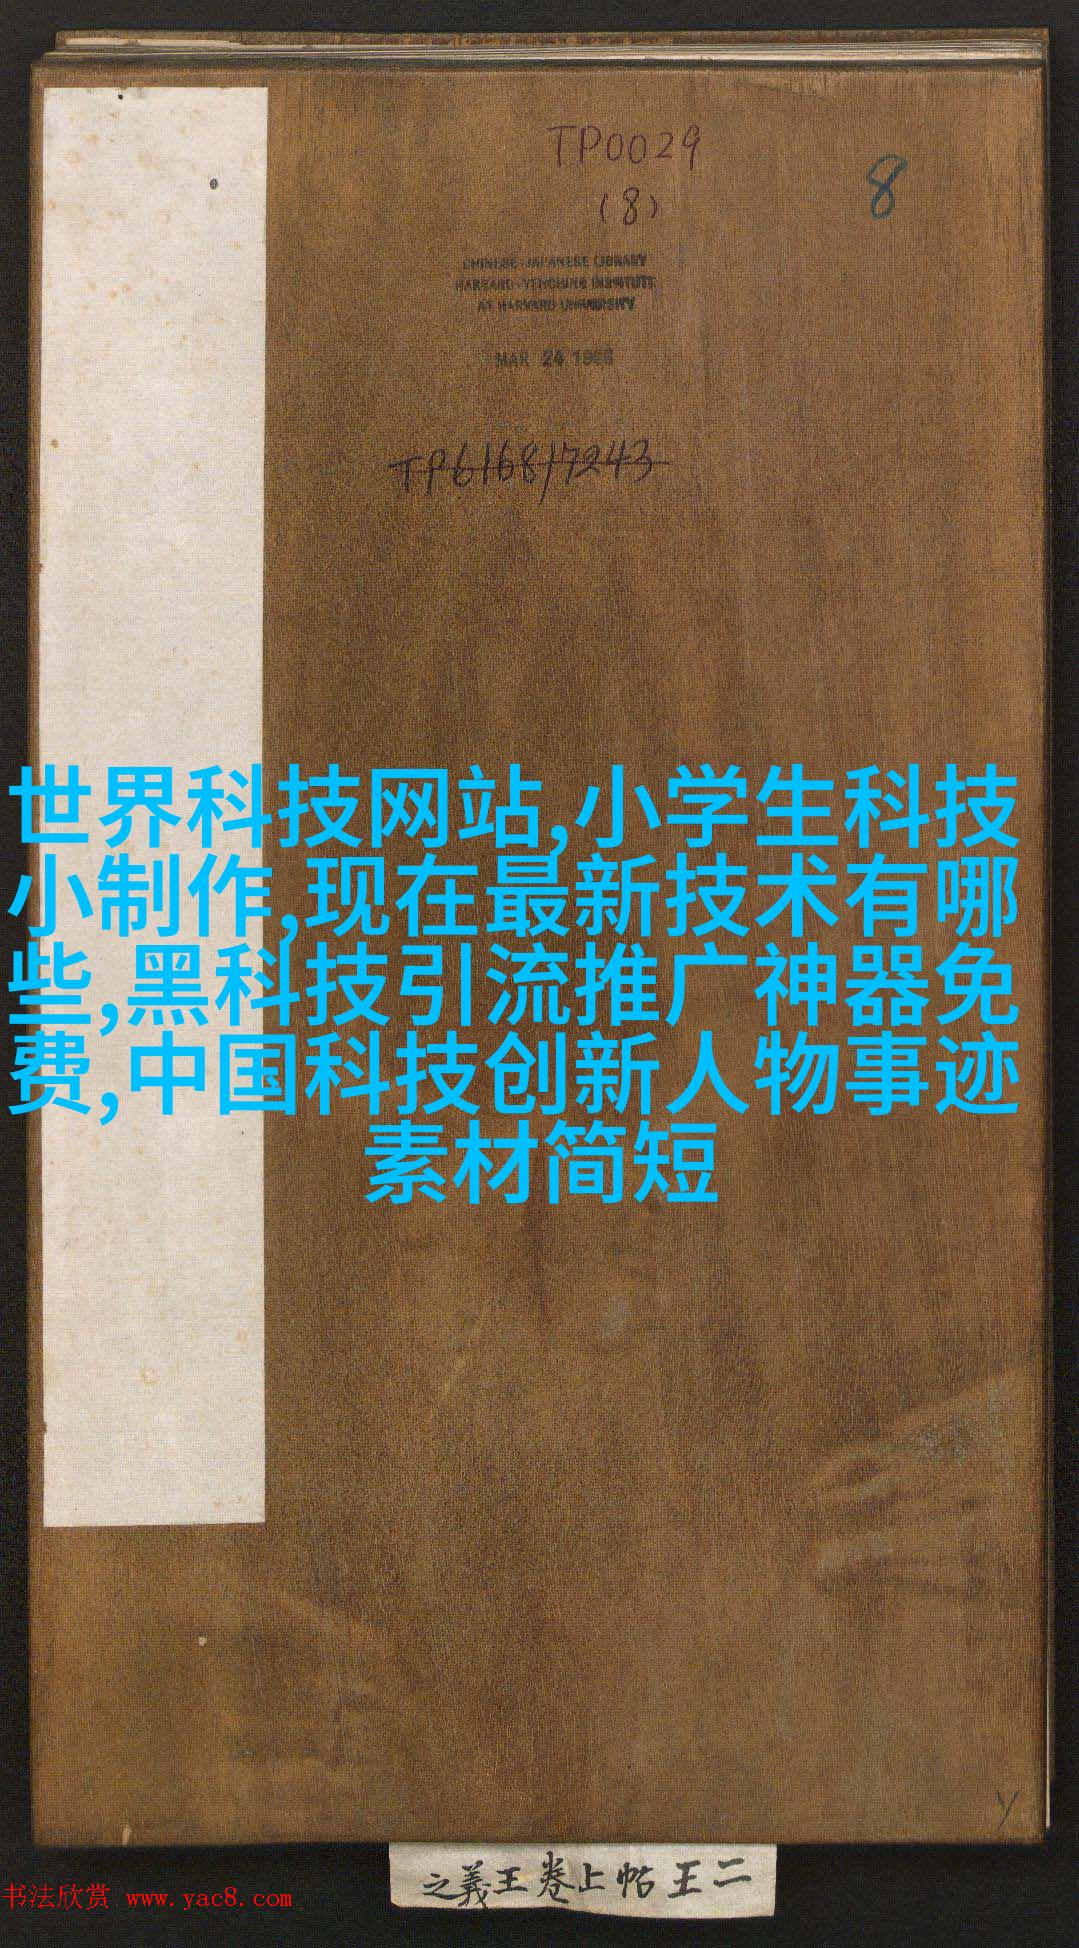 TP0029
(8)
8
CHINESE-JAPANESE LIBRARY
HARVARD-YENCHING INSTITUTE
AT HARVARD UNIVERSITY
MAR 24
TP6168/7243
世界科技网站,小学生科技
小制作,现在最新技术有哪
些,黑科技引流推广神器免
费,中国科技创新人物事迹
素材简短
二王帖上卷王羲之
书法欣赏 www.yac8.com